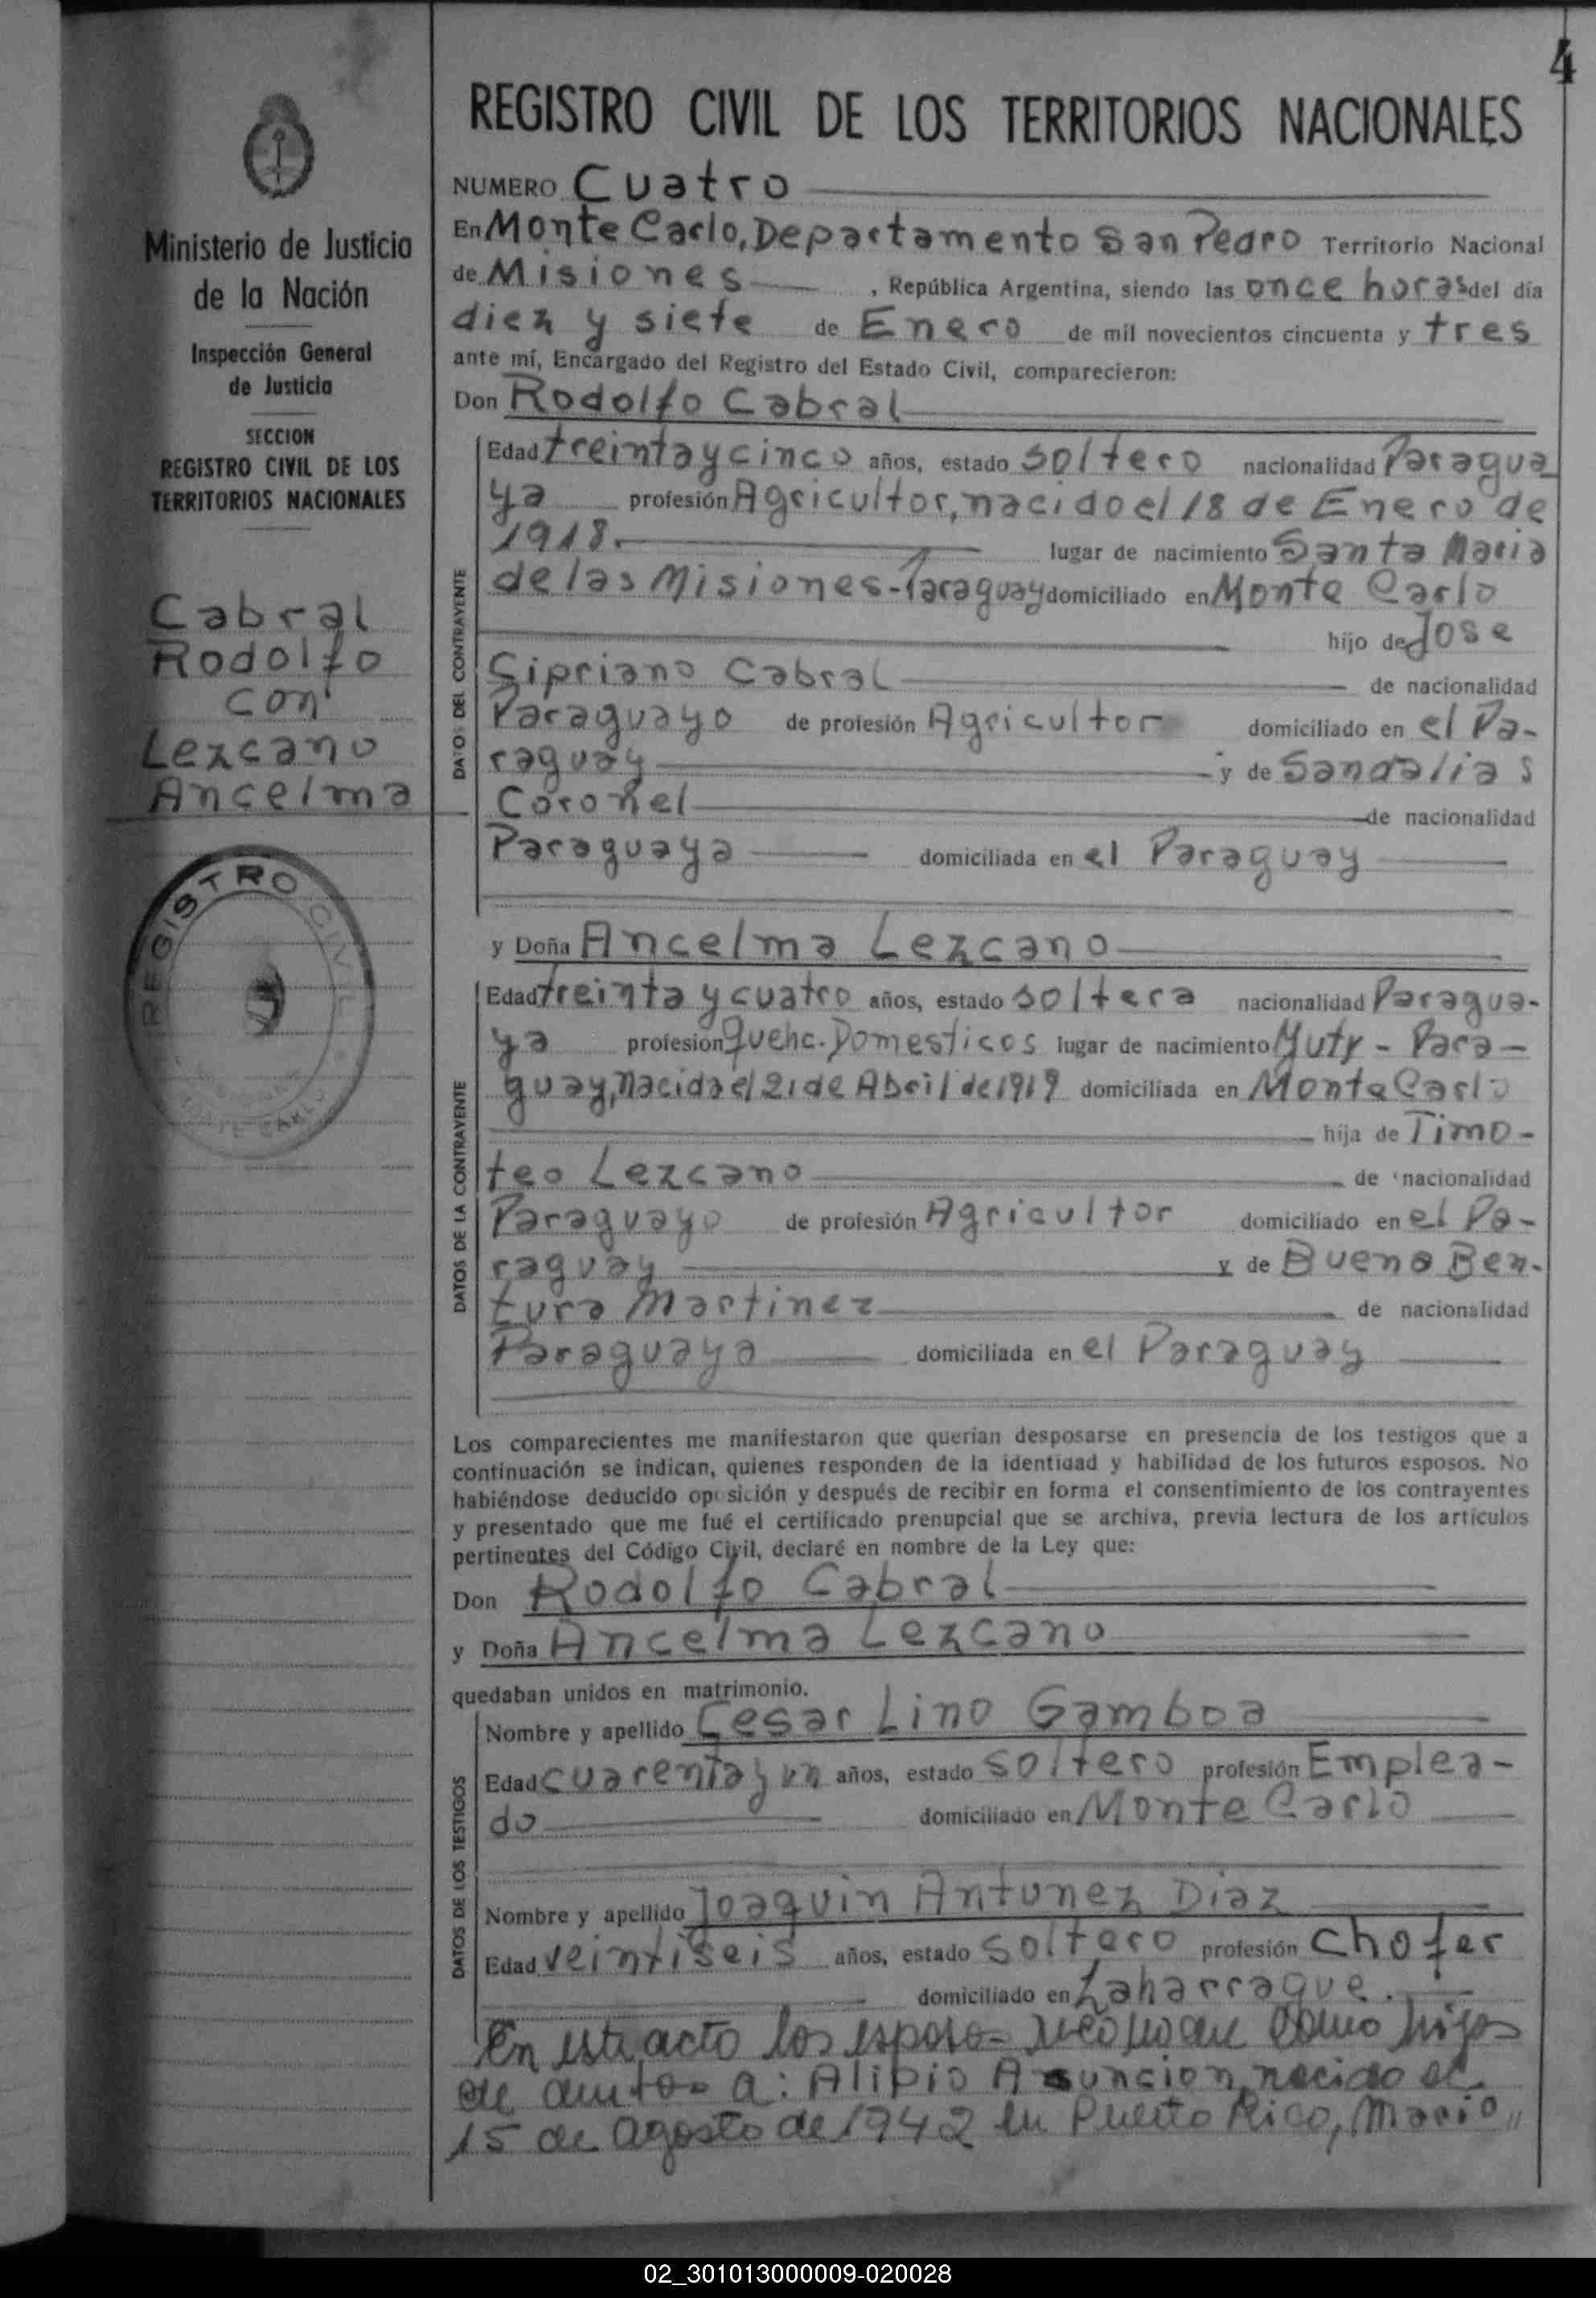 4
REGISTRO CIVIL DE LOS TERRITORIOS NACIONALES
Ministerio de Justicia
de la Nación
Inspección General
de Justicia
SECCION
REGISTRO CIVIL DE LOS
TERRITORIOS NACIONALES
Cabral
Rodolfo
con
Lezcano
Ancelma
REGISTRO CIVIL
MONTE CARLO
NUMERO Cuatro
En Monte Carlo, Departamento San Pedro Territorio Nacional
de Misiones , República Argentina, siendo las once horas del día
diez y siete de Enero de mil novecientos cincuenta y tres
ante mí, Encargado del Registro del Estado Civil, comparecieron:
Don Rodolfo Cabral
DATOS DEL CONTRAYENTE
Edad treinta y cinco años, estado soltero nacionalidad Paragua
ya profesión Agricultor, nacido el 18 de Enero de
1918. lugar de nacimiento Santa Maria
de las Misiones - Paraguay domiciliado en Monte Carlo
hijo de Jose
Sipriano Cabral de nacionalidad
Paraguayo de profesión Agricultor domiciliado en el Pa-
raguay y de Sandalias
Coronel de nacionalidad
Paraguaya domiciliada en el Paraguay
y Doña Ancelma Lezcano
DATOS DE LA CONTRAYENTE
Edad treinta y cuatro años, estado soltera nacionalidad Paragua-
ya profesión Quehc. Domesticos lugar de nacimiento Yuty - Para-
guay, nacida el 21 de Abril de 1919 domiciliada en Monte Carlo
hija de Timo-
teo Lezcano de nacionalidad
Paraguayo de profesión Agricultor domiciliado en el Pa-
raguay y de Buena Ben-
tura Martinez de nacionalidad
Paraguaya domiciliada en el Paraguay
Los comparecientes me manifestaron que querían desposarse en presencia de los testigos que a
continuación se indican, quienes responden de la identidad y habilidad de los futuros esposos. No
habiéndose deducido oposición y después de recibir en forma el consentimiento de los contrayentes
y presentado que me fué el certificado prenupcial que se archiva, previa lectura de los artículos
pertinentes del Código Civil, declaré en nombre de la Ley que:
Don Rodolfo Cabral
y Doña Ancelma Lezcano
quedaban unidos en matrimonio.
DATOS DE LOS TESTIGOS
Nombre y apellido Cesar Lino Gamboa
Edad cuarenta y un años, estado soltero profesión Emplea-
do domiciliado en Monte Carlo
Nombre y apellido Joaquin Antunez Diaz
Edad veintiseis años, estado soltero profesión chofer
domiciliado en Laharrague.
En este acto los esposos reconocen como hijos
de ambos a: Alipio Asuncion, nacido el
15 de agosto de 1942 en Puerto Rico, Mario,,
02_301013000009-020028